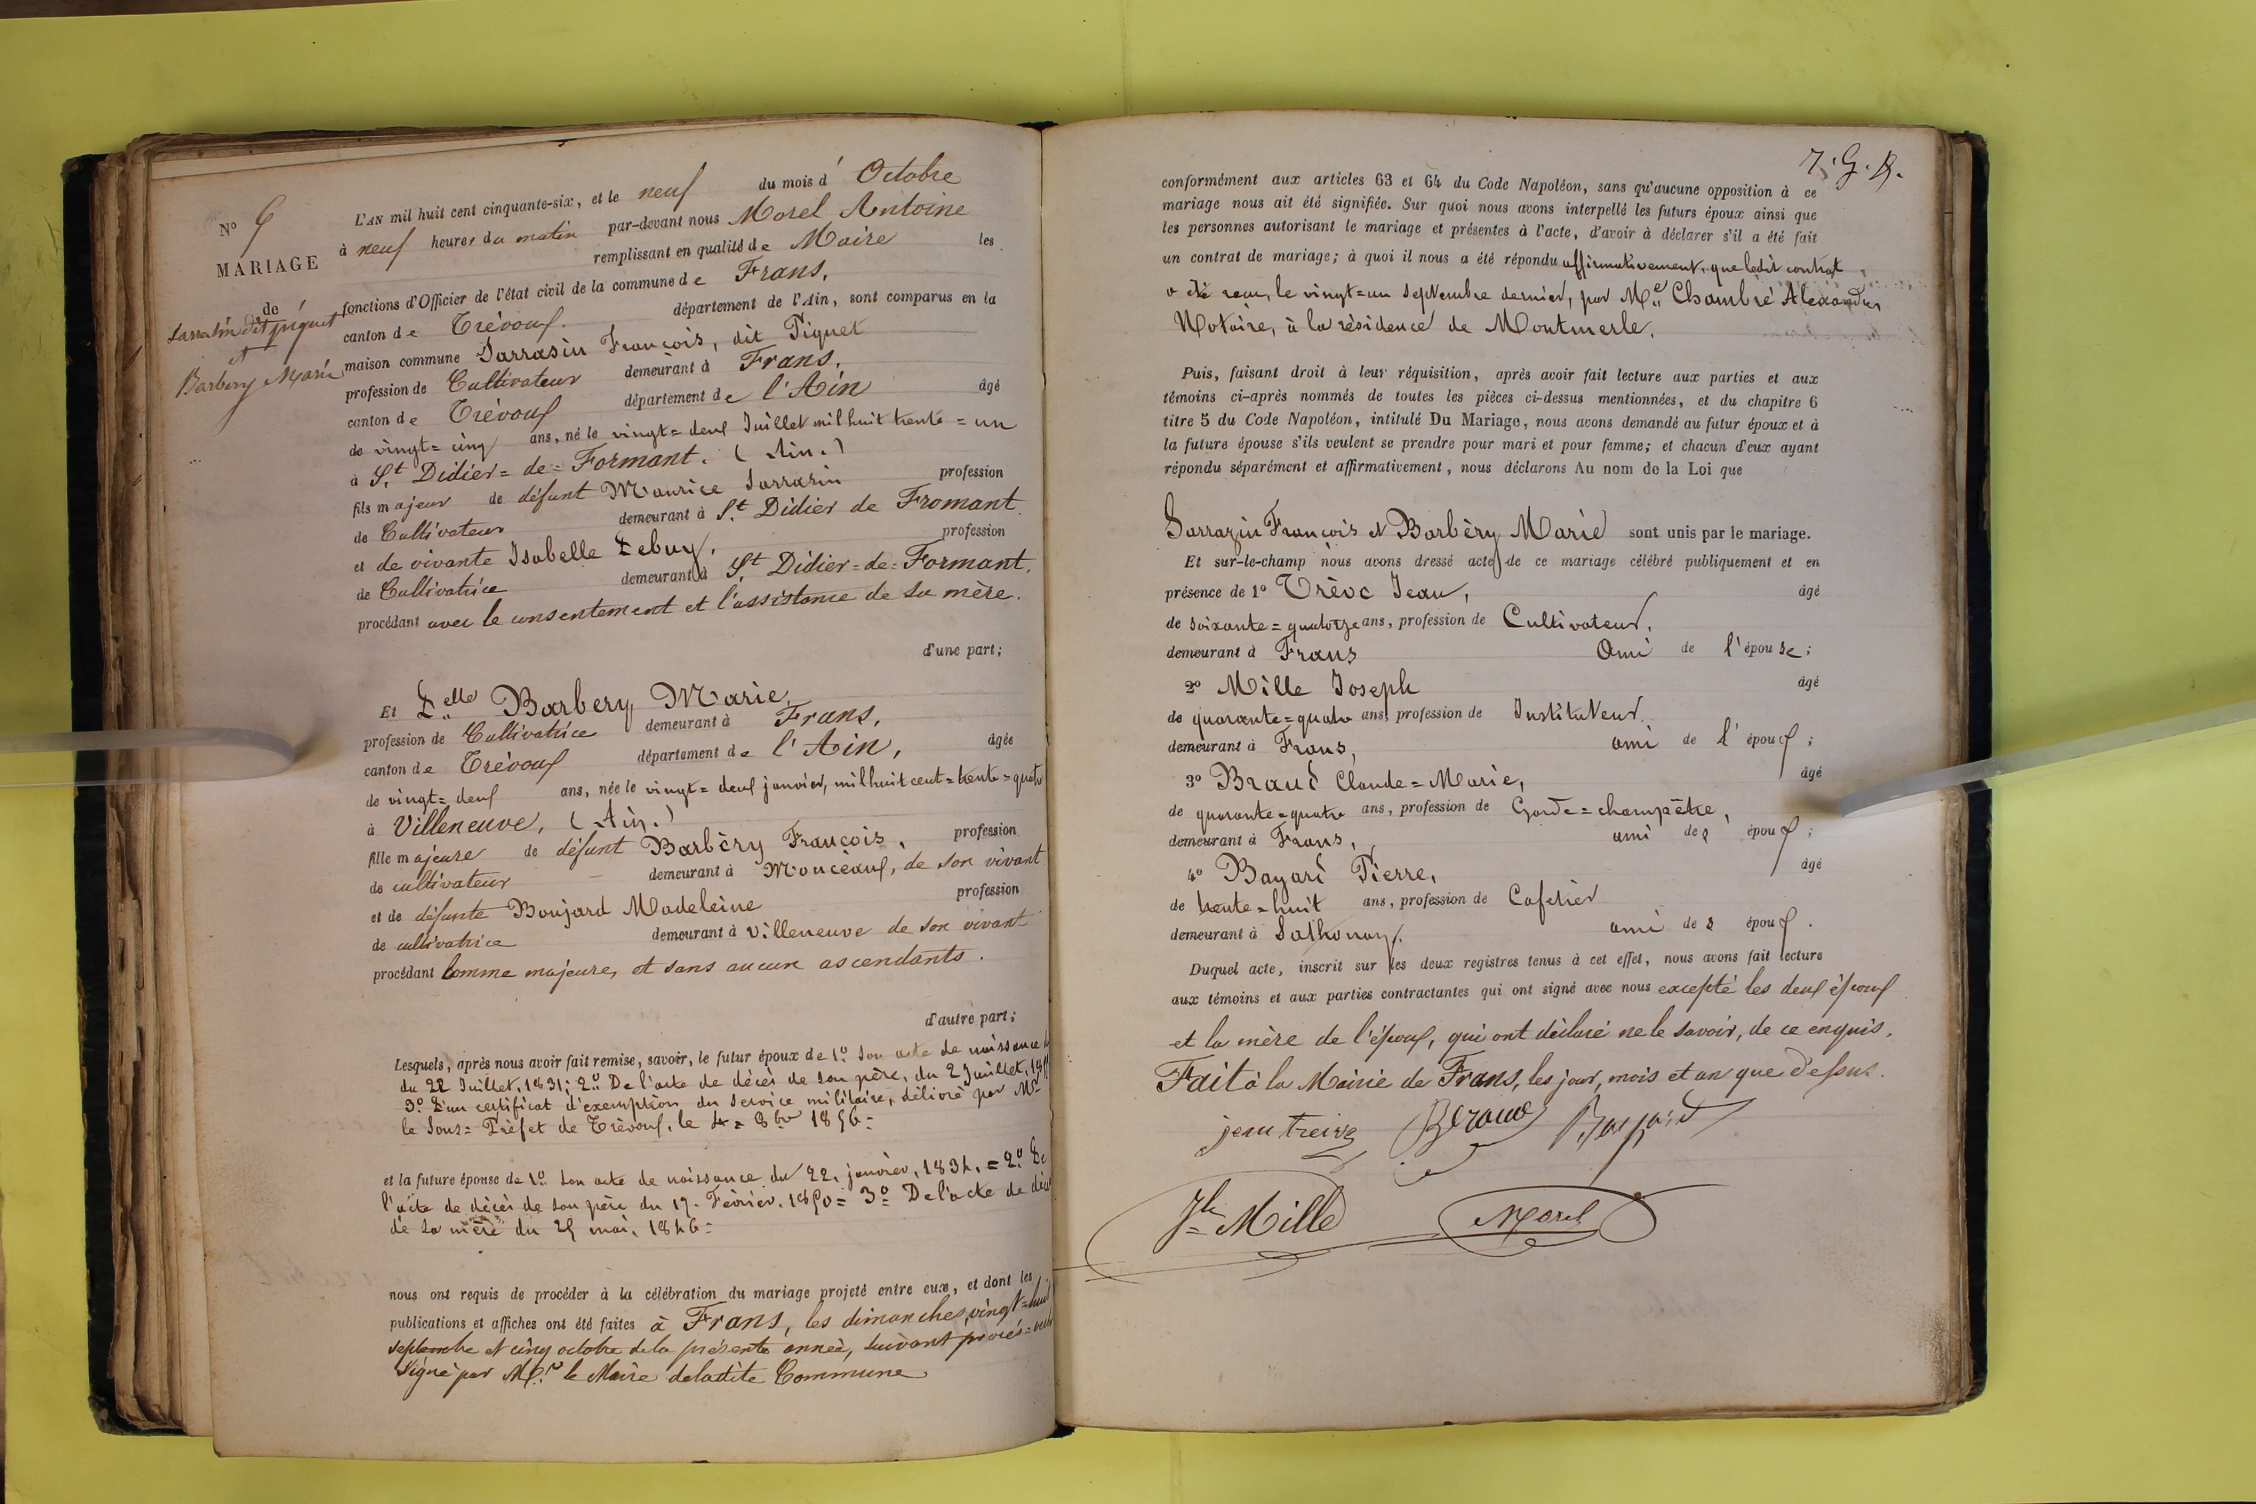 L'AN mil huit cent cinquante-six, et le neuf du mois d' Octobre
N° 6
à neuf heures du matin par-devant nous Morel Antoine
MARIAGE
remplissant en qualité de Maire les
de
fonctions d'Officier de l'état civil de la commune de Frans,
Sarrasin dit piquet
canton de Trévoux. département de l'Ain, sont comparus en la
et
maison commune Sarrasin François, dit Piquet
Barbery Marie
profession de Cultivateur demeurant à Frans,
canton de Trévoux département de l'Ain âgé
de vingt=cinq ans, né le vingt=deux Juillet mil huit trente=un
à St Didier=de=Formant. (Ain.)
fils majeur de défunt Maurice Sarrasin profession
de Cultivateur demeurant à St Didier de Fromant
et de vivante Isabelle Debuy, profession
de Cultivatrice demeurant à St Didier=de=Formant.
procédant avec le consentement et l'assistance de sa mère.
d'une part;
Et Delle Barbery Marie,
profession de Cultivatrice demeurant à Frans,
canton de Trévoux département de l'Ain, âgée
de vingt=deux ans, née le vingt=deux janvier, mil huit cent=trente=quatre
à Villeneuve, (Ain.)
fille majeure de défunt Barbèry François, profession
de cultivateur demeurant à Moncèaux, de son vivant
et de défunte Boujard Madeleine profession
de cultivatrice demeurant à Villeneuve de son vivant
procédant Comme majeure, et sans aucun ascendants.
d'autre part;
Lesquels, après nous avoir fait remise, savoir, le futur époux de 1° Son acte de naissance
du 22 Juillet, 1831; 2° De l'acte de décès de son père, du 2 Juillet,
3° D'un certificat d'exemption du service militaire, délivré par Mr
le Sous=Préfet de Trèvoux, le 4=8bre 1856=
et la future épouse de 1° Son acte de naissance du 22. janvier, 1834.=2° De
l'acte de décès de son père du 17. Février. 1850=3° De l'acte de décès
de sa mère du 25 mai, 1846=
nous ont requis de procéder à la célébration du mariage projeté entre eux, et dont les
publications et affiches ont été faites à Frans, les dimanches, vingt=huit
septembre et cinq octobre de la présente année, suivant procès=verbal
Signé par Mr le Maire de ladite Commune
7. G. B.
conformément aux articles 63 et 64 du Code Napoléon, sans qu'aucune opposition à ce
mariage nous ait été signifiée. Sur quoi nous avons interpellé les futurs époux ainsi que
les personnes autorisant le mariage et présentes à l'acte, d'avoir à déclarer s'il a été fait
un contrat de mariage; à quoi il nous a été répondu affirmativement, que ledit contrat
a été reçu, le vingt=un septembre dernier, par Me Chambré Alexandre
Notaire, à la résidence de Montmerle.
Puis, faisant droit à leur réquisition, après avoir fait lecture aux parties et aux
témoins ci-après nommés de toutes les pièces ci-dessus mentionnées, et du chapitre 6
titre 5 du Code Napoléon, intitulé Du Mariage, nous avons demandé au futur époux et à
la future épouse s'ils veulent se prendre pour mari et pour femme; et chacun d'eux ayant
répondu séparément et affirmativement, nous déclarons Au nom de la Loi que
Sarrazin François et Barbèry Marie sont unis par le mariage.
Et sur-le-champ nous avons dressé acte de ce mariage célébré publiquement et en
présence de 1° Trève Jean, âgé
de soixante=quatorze ans, profession de Cultivateur,
demeurant à Frans Ami de l'épouse;
2° Mille Joseph âgé
de quarante=quatre ans, profession de Instituteur
demeurant à Frans, ami de l'époux;
3° Braud Claude=Marie, âgé
de quarante=quatre ans, profession de Garde=champêtre,
demeurant à Frans, ami des époux;
4° Bayard Pierre, âgé
de trente=huit ans, profession de Cafetier
demeurant à Sathonay. ami des époux.
Duquel acte, inscrit sur les deux registres tenus à cet effet, nous avons fait lecture
aux témoins et aux parties contractantes qui ont signé avec nous excepté les deux époux
et la mère de l'époux, qui ont déclaré ne le savoir, de ce enquis.
Fait à la Mairie de Frans, les jour, mois et an que dessus.
jean Bayard
Jh Mille Morel